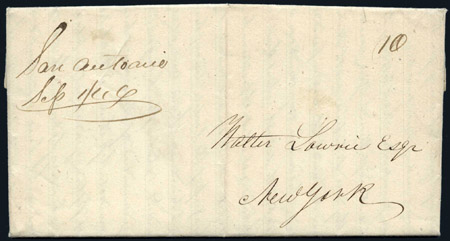 San Antonio
Sep
10
Walter Lowrie Esqr
New York